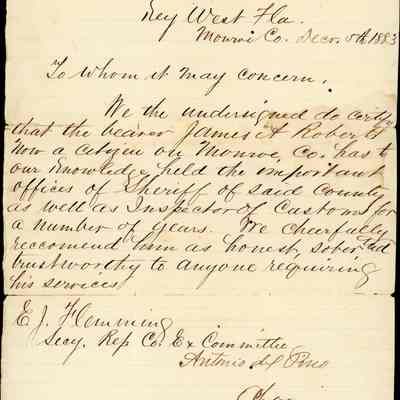 Key West Fla.
Monroe Co. Decr. 5th 1883
To whom it may concern.
We the undersigned do certify
that the bearer James A Roberts
now a citizen on Monroe, Co. has to
our Knowledge held the important
offices of Sheriff of said County
as well as Inspector of Customs for
a number of years. We cheerfully
reccomend him as honest, sober and
trustworthy to anyone requiring
his services
E J. Flemming
Secy. Rep Co. Ex Committee
Antonio del Pino